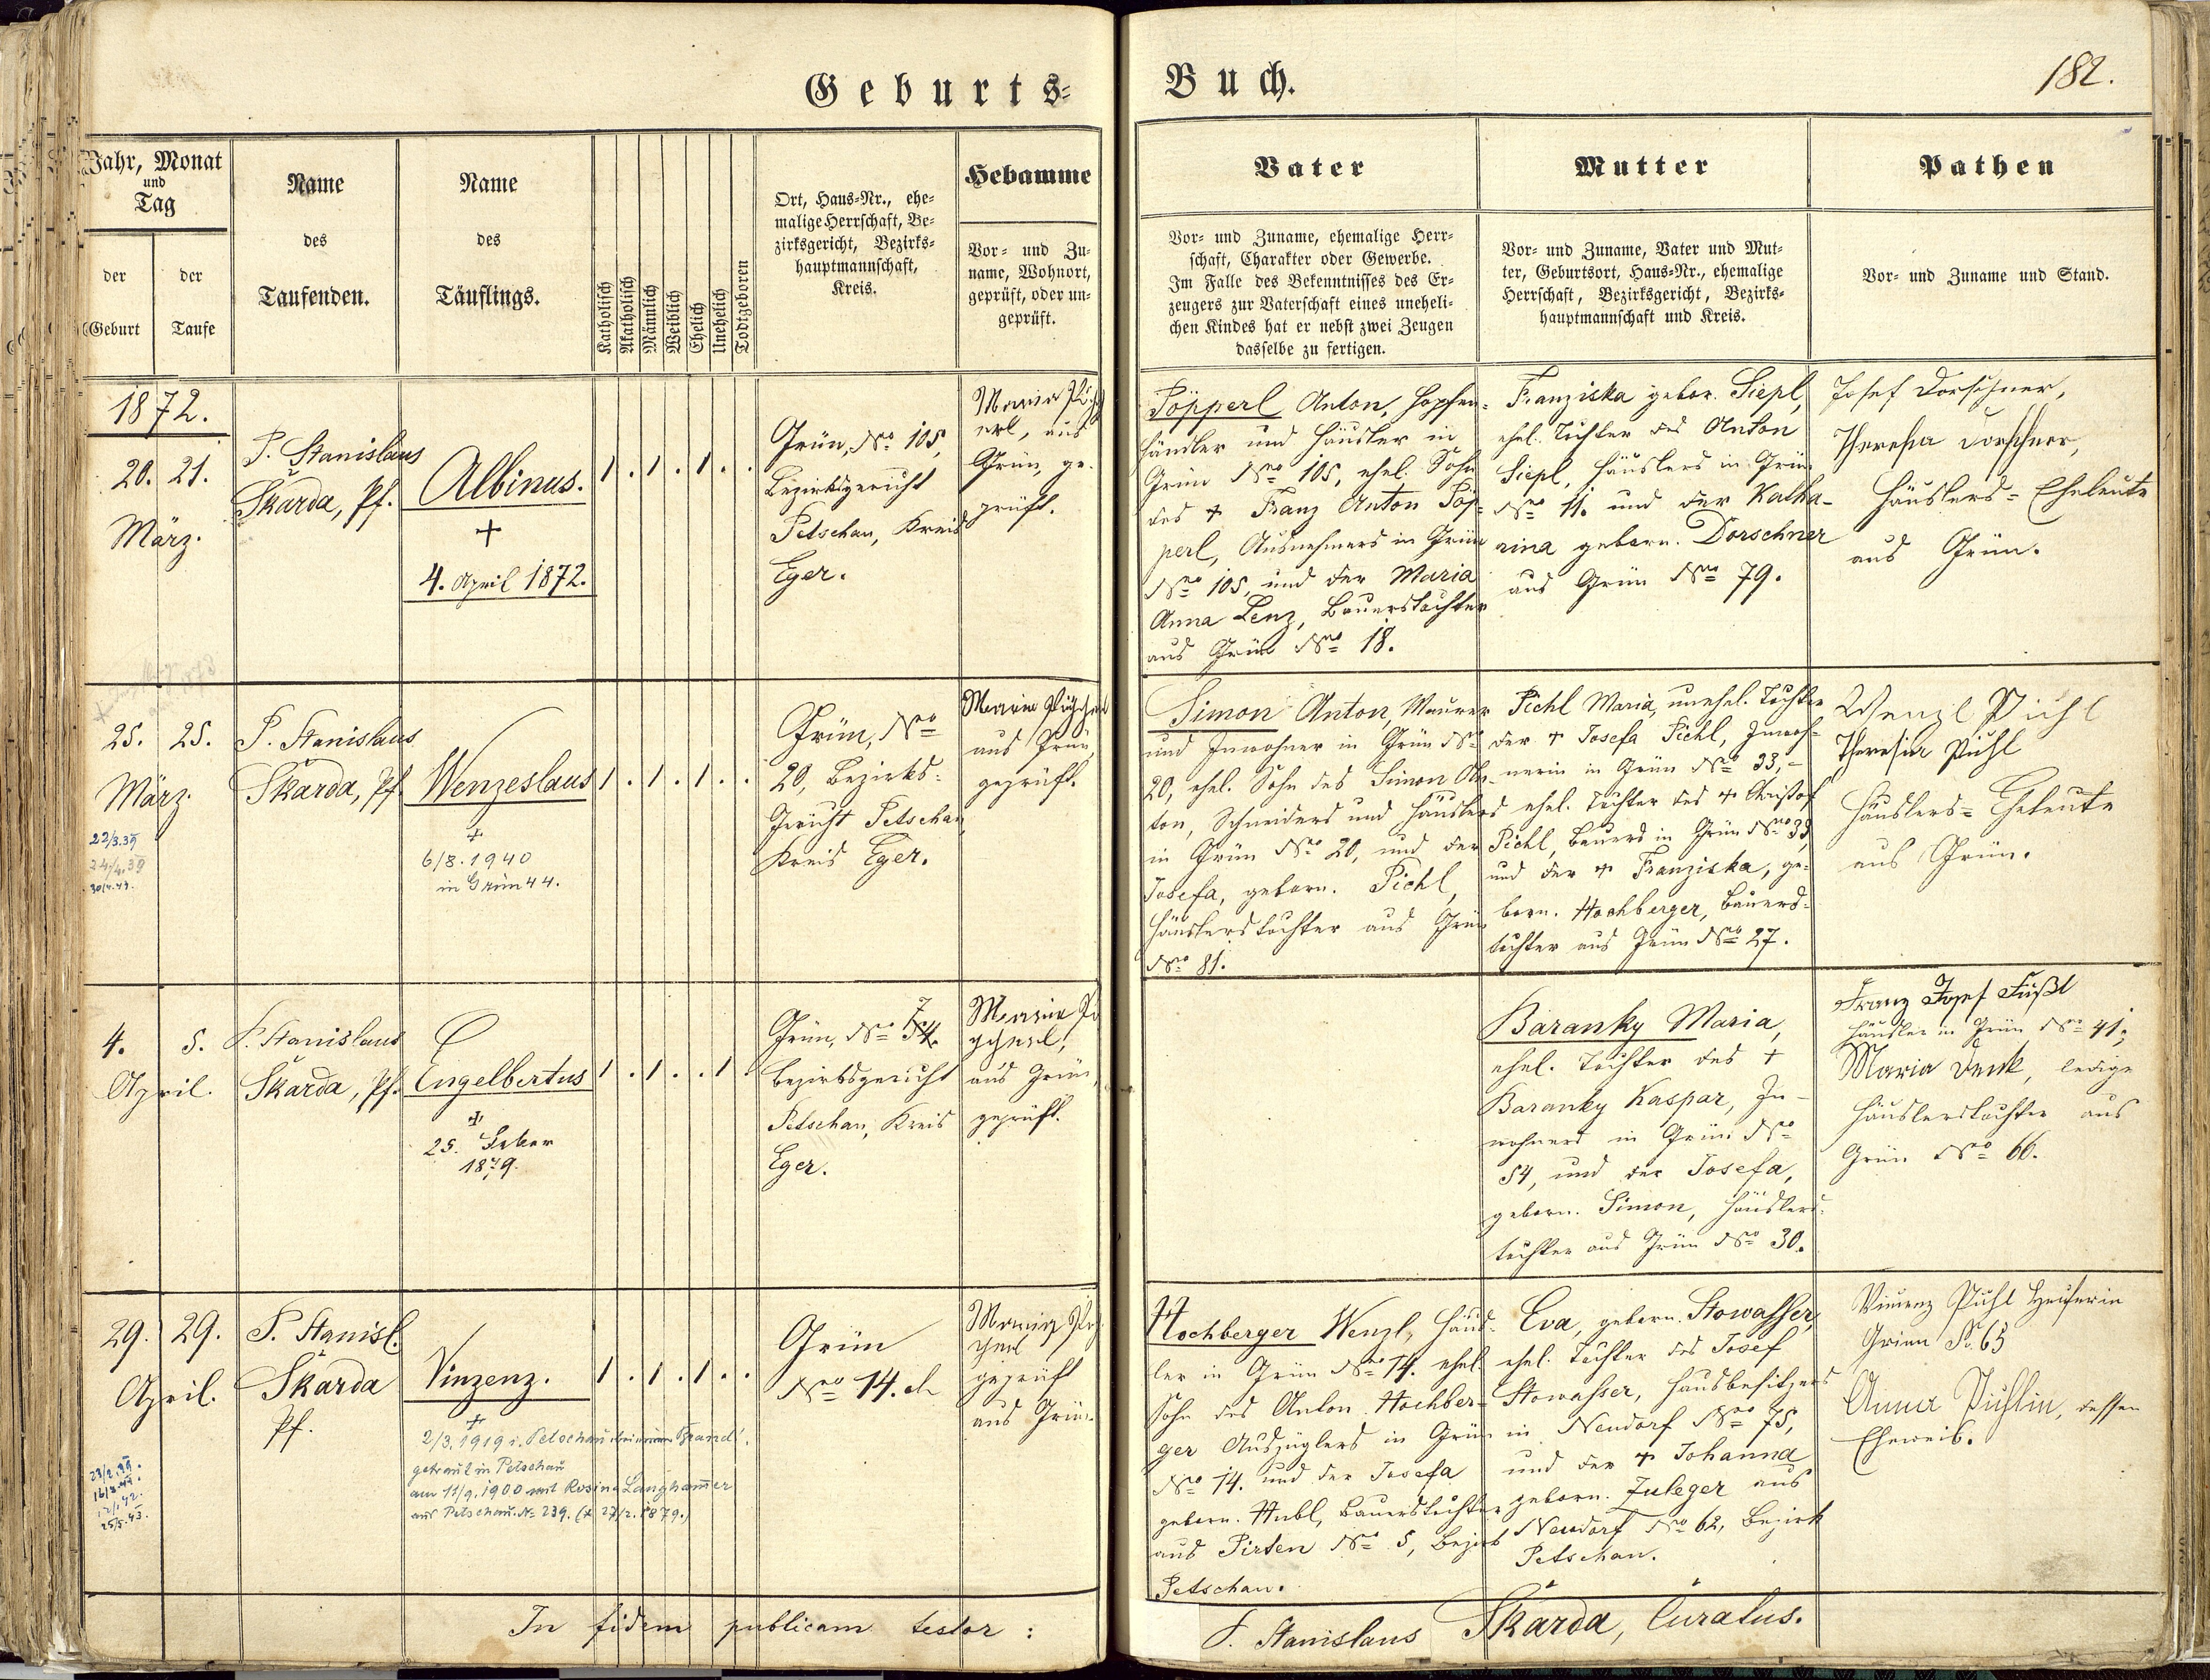 Geburts=
Buch.
182.
Jahr, Monat
und
Tag
der
Geburt
der
Taufe
Name
des
Taufenden.
Name
des
Täuflings.
Katholisch
Akatholisch
Männlich
Weiblich
Ehelich
Unehelich
Todtgeboren
Ort, Haus=Nr., ehe=
malige Herrschaft, Be=
zirksgericht, Bezirks=
hauptmannschaft,
Kreis.
Hebamme
Vor= und Zu=
name, Wohnort,
geprüft, oder un=
geprüft.
Vater
Vor= und Zuname, ehemalige Herr=
schaft, Charakter oder Gewerbe.
Im Falle des Bekenntnisses des Er=
zeugers zur Vaterschaft eines uneheli=
chen Kindes hat er nebst zwei Zeugen
dasselbe zu fertigen.
Mutter
Vor= und Zuname, Vater und Mut=
ter, Geburtsort, Haus=Nr., ehemalige
Herrschaft, Bezirksgericht, Bezirks=
hauptmannschaft und Kreis.
Pathen
Vor= und Zuname und Stand.
1872.
20. 21.
März.
P. Stanislaus
Skarda, Pf.
Albinus.
+
4. April 1872.
1 . 1 . 1 . .
Grün, No 105,
Bezirksgericht
Petschau, Kreis
Eger.
Maria
aus
Grün, ge-
prüft.
Pöpperl Anton, Hopfen=
händler und Häusler in
Grün No 105, ehel. Sohn
des + Franz Anton Pöp=
perl, Ausnehmers in Grün
No 105, und der Maria
Anna Lenz, Bauerstochter
aus Grün No 18.
Franziska gebor. Siepl,
ehel. Tochter des Anton
Siepl, Häuslers in Grün
No 11. und der Katha-
rina geborn. Dorschner
aus Grün No 79.
Josef Dorschner,
Theresia Dorschner,
Häuslers= Eheleute
aus Grün.
25. 25.
März.
22/3.39
24/4.39
P. Stanislaus
Skarda, Pf.
Wenzeslaus
+
6/8.1940
in Grün 44.
1 . 1 . 1 . .
Grün, No
20, Bezirks=
Gericht Petschau,
Kreis Eger.
Maria
aus Grün,
geprüft.
Simon Anton, Maurer
und Inwohner in Grün No
20, ehel. Sohn des Simon An-
ton, Schneiders und Häuslers
in Grün No 20, und der
Josefa, geborn. Pichl,
Häuslerstochter aus Grün
No 81.
Pichl Maria, unehel. Tochter
der + Josefa Pichl, Inwoh=
nerin in Grün No 33,-
ehel. Tochter des + Christof
Pichl, Bauers in Grün No 33,
und der + Franziska, ge-
born. Hochberger, Bauers-
tochter aus Grün No 27.
Wenzl Pichl
Theresia Pichl
Häuslers= Eheleute
aus Grün.
4. 5.
April.
P. Stanislaus
Skarda, Pf.
Engelbertus
+
25.
1879.
1 . 1 . . 1 .
Grün, No 54.
Bezirksgericht
Petschau, Kreis
Eger.
Maria
aus Grün,
geprüft.
Baranky Maria,
ehel. Tochter des +
Baranky Kaspar, In-
wohners in Grün No
54, und der Josefa,
geborn. Simon, Häuslers-
tochter aus Grün No 30.
Franz Josef Füßl
Häusler in Grün No 41,
Maria Denk, ledige
Häuslerstochter aus
Grün No 66.
29. 29.
April.
25/5.43.
P. Stanisl.
Skarda
Pf.
Vinzenz.
+
2/3.1919 i. Petschau
getraut in Petschau
am 11/9.1900 mit Rosina Langhammer
aus Petschau No 239. (* 27/2.1879.)
1 . 1 . 1 . .
Grün
No 14.
Maria
geprüft
aus Grün.
Hochberger Wenzl, Häus-
ler in Grün No 14. ehel.
Sohn des Anton Hochber=
ger Auszüglers in Grün
No 14. und der Josefa
geborn. Hubl, Bauerstochter
aus Pirten No 5, Bezirk
Petschau.
Eva, geborn. Stowasser,
ehel. Tochter des Josef
Stowasser, Hausbesitzers
in Neudorf No 75,
und der + Johanna
geborn. Zuleger aus
Neudorf No 62, Bezirk
Petschau.
Vinzenz Pichl Heusler in
Grien No. 65
Anna Pichlin, dessen
Eheweib.
In fidem publicam testor :
P. Stanislaus Skarda, Curatus.